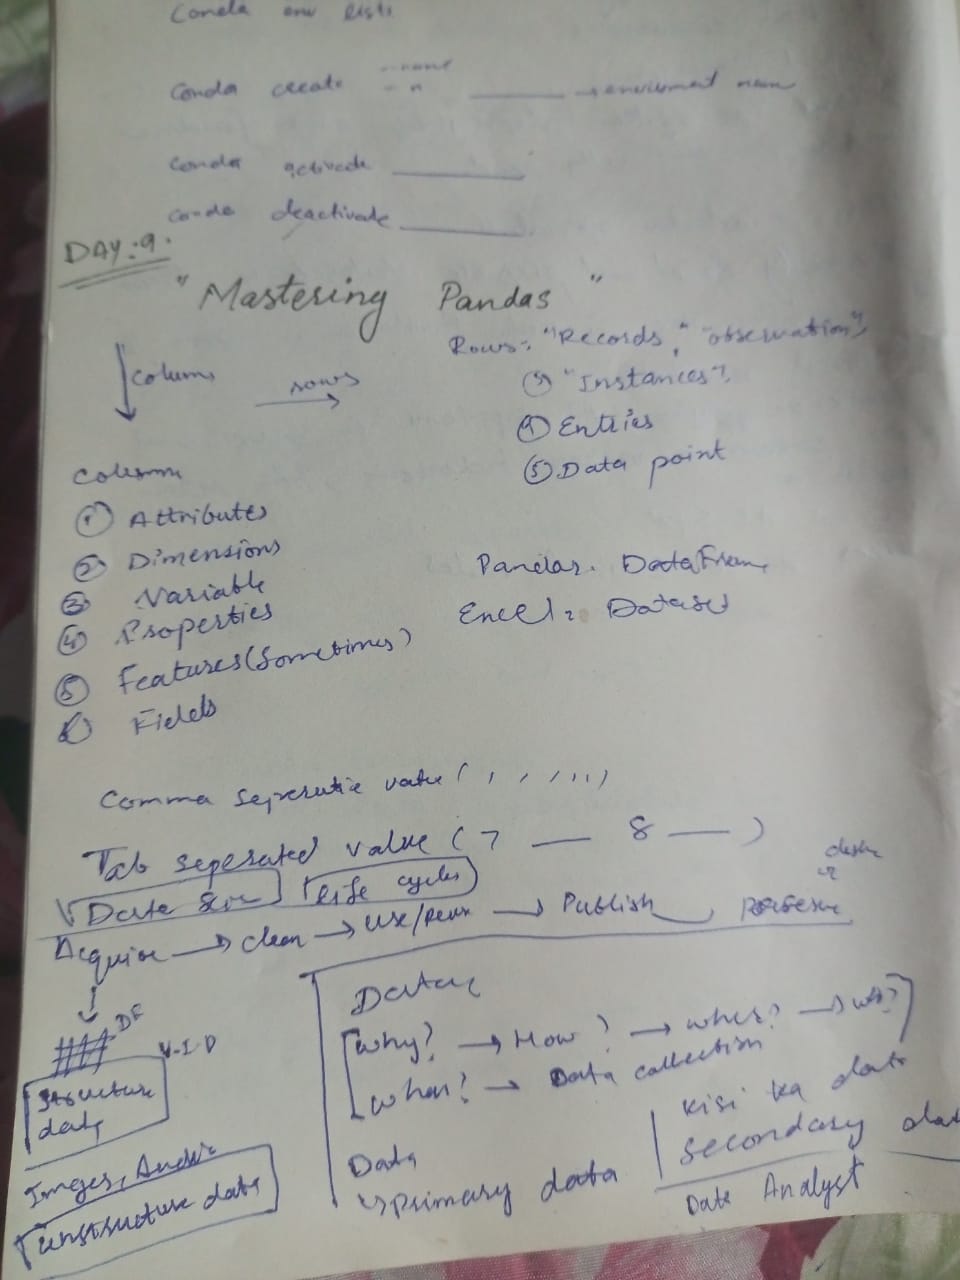 Conda env list
Conda create --name
-n ____ → enviroment name
Conda activate ____
Conda deactivate ____
DAY:9.
"Mastering Pandas"
Rows: "Records," "observation",
columns
rows
③ "Instances",
④ Entries
⑤ Data point
Column
① Attributes
② Dimensions
③ Variable
④ Properties
⑤ Features (Sometimes)
⑥ Fields
Pandas. DataFrame
Excel: Dataset
Comma seperatie value ( , , , , , , )
Tab seperated value ( 7 __ 8 __ )
Data Life cycles
Acquire → Clean → Use/ → Publish
DF
V-I-D
Structure
data
Images, Audio
Unstructure data
Data
Why? → How? → →
When? → Data collection
Data
↳ Primary data
Kisi ka data
Secondary data
Data Analyst